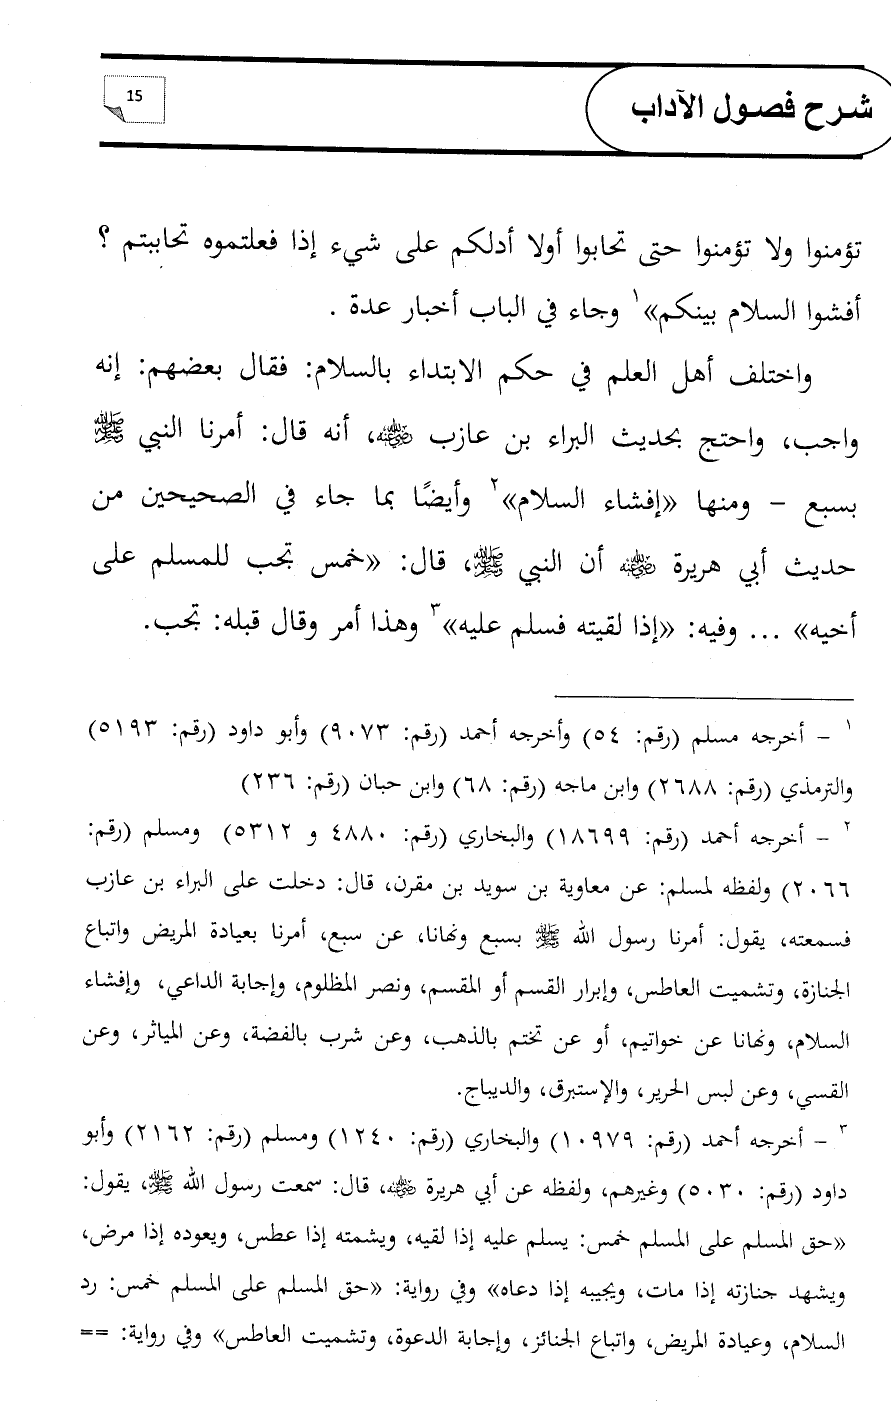 شرح فصول الآداب
15
تؤمنوا ولا تؤمنوا حتى تحابوا أولا أدلكم على شيء إذا فعلتموه تحاببتم ؟
أفشوا السلام بينكم»١ وجاء في الباب أخبار عدة .
واختلف أهل العلم في حكم الابتداء بالسلام: فقال بعضهم: إنه
واجب، واحتج بحديث البراء بن عازب رضي الله عنه، أنه قال: أمرنا النبي ﷺ
بسبع – ومنها «إفشاء السلام»٢ وأيضًا بما جاء في الصحيحين من
حديث أبي هريرة رضي الله عنه أن النبي ﷺ، قال: «خمس تجب للمسلم على
أخيه» ... وفيه: «إذا لقيته فسلم عليه»٣ وهذا أمر وقال قبله: تجب.
١ – أخرجه مسلم (رقم: ٥٤) وأخرجه أحمد (رقم: ٩٠٧٣) وأبو داود (رقم: ٥١٩٣)
والترمذي (رقم: ٢٦٨٨) وابن ماجه (رقم: ٦٨) وابن حبان (رقم: ٢٣٦)
٢ – أخرجه أحمد (رقم: ١٨٦٩٩) والبخاري (رقم: ٤٨٨٠ و ٥٣١٢) ومسلم (رقم:
٢٠٦٦) ولفظه لمسلم: عن معاوية بن سويد بن مقرن، قال: دخلت على البراء بن عازب
فسمعته، يقول: أمرنا رسول الله ﷺ بسبع ونهانا، عن سبع، أمرنا بعيادة المريض واتباع
الجنازة، وتشميت العاطس، وإبرار القسم أو المقسم، ونصر المظلوم، وإجابة الداعي، وإفشاء
السلام، ونهانا عن خواتيم، أو عن تختم بالذهب، وعن شرب بالفضة، وعن المياثر، وعن
القسي، وعن لبس الحرير، والإستبرق، والديباج.
٣ – أخرجه أحمد (رقم: ١٠٩٧٩) والبخاري (رقم: ١٢٤٠) ومسلم (رقم: ٢١٦٢) وأبو
داود (رقم: ٥٠٣٠) وغيرهم، ولفظه عن أبي هريرة رضي الله عنه، قال: سمعت رسول الله ﷺ، يقول:
«حق المسلم على المسلم خمس: يسلم عليه إذا لقيه، ويشمته إذا عطس، ويعوده إذا مرض،
ويشهد جنازته إذا مات، ويجيبه إذا دعاه» وفي رواية: «حق المسلم على المسلم خمس: رد
السلام، وعيادة المريض، واتباع الجنائز، وإجابة الدعوة، وتشميت العاطس» وفي رواية: ==